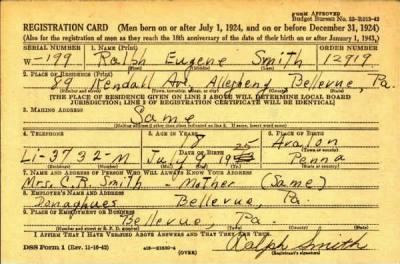 FORM APPROVED
Budget Bureau No. 33-R013-42
REGISTRATION CARD (Men born on or after July 1, 1924, and on or before December 31, 1924)
(Also for the registration of men as they reach the 18th anniversary of the date of their birth on or after January 1, 1943.)
SERIAL NUMBER 1. NAME (Print) ORDER NUMBER
W-199 Ralph Eugene Smith 12919
(First) (Middle) (Last)
2. PLACE OF RESIDENCE (Print)
89 Kendall Ave. Allegheny Bellevue, Pa.
[THE PLACE OF RESIDENCE GIVEN ON LINE 2 ABOVE WILL DETERMINE LOCAL BOARD
JURISDICTION; LINE 2 OF REGISTRATION CERTIFICATE WILL BE IDENTICAL]
3. MAILING ADDRESS
Same
[Mailing address if other than place indicated on line 2. If same, insert word same]
4. TELEPHONE 5. AGE IN YEARS 6. PLACE OF BIRTH
18 Avalon
DATE OF BIRTH (Town or county)
Li-3732-M July 9 1925 Penna
7. NAME AND ADDRESS OF PERSON WHO WILL ALWAYS KNOW YOUR ADDRESS
Mrs. C.R. Smith - Mother (Same)
8. EMPLOYER'S NAME AND ADDRESS
Donaghues Bellevue, Pa.
9. PLACE OF EMPLOYMENT OR BUSINESS
Bellevue, Pa.
I AFFIRM THAT I HAVE VERIFIED ABOVE ANSWERS AND THAT THEY ARE TRUE.
DSS Form 1 (Rev. 11-16-42) (OVER) Ralph Smith
(Registrant's signature)